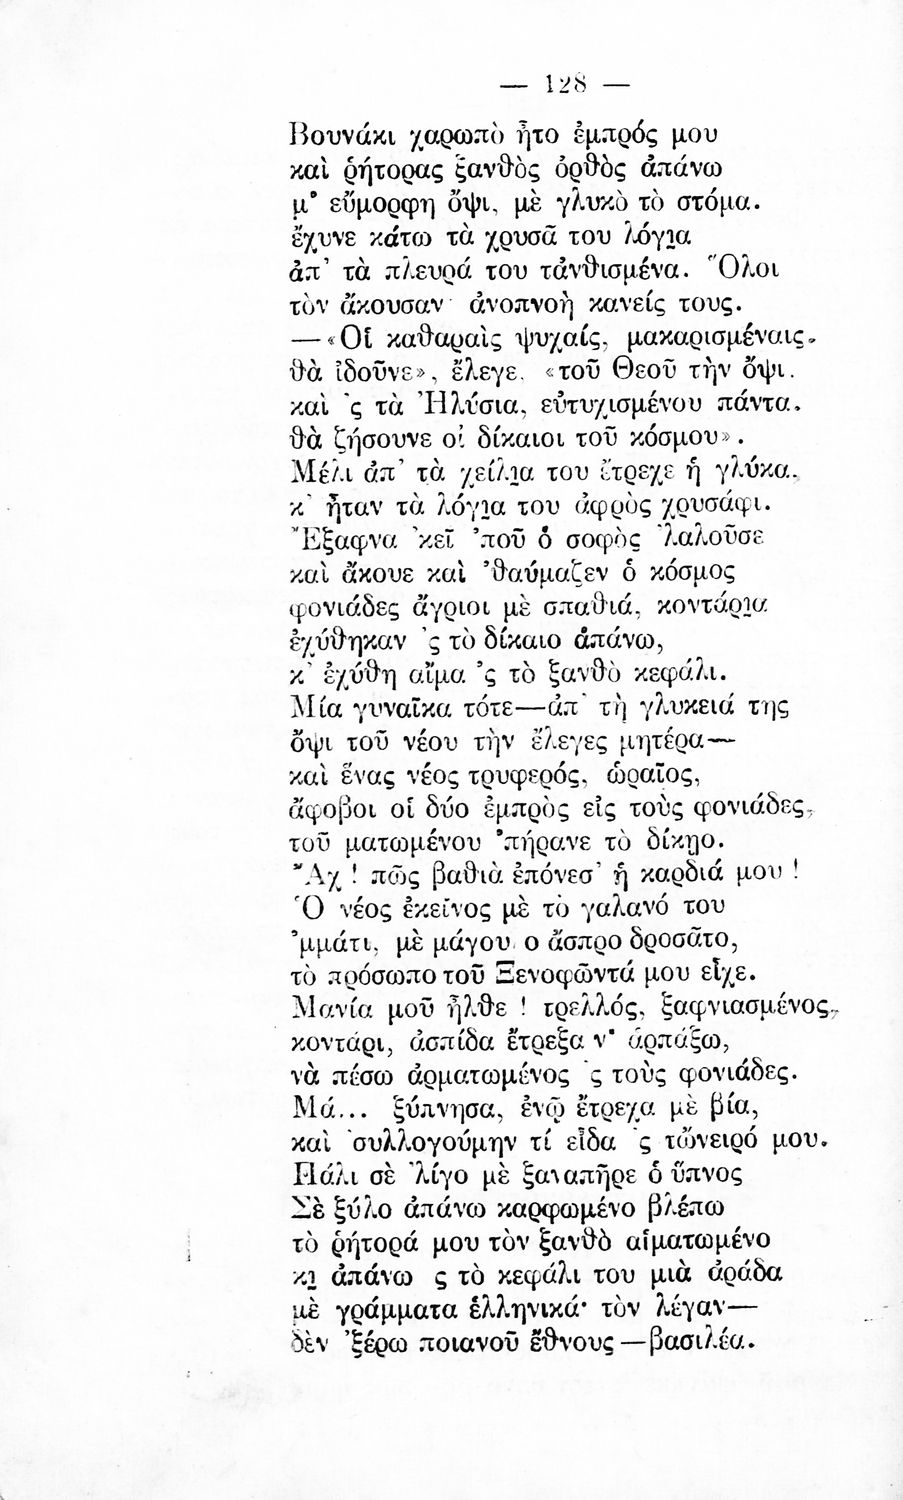 — 128 —
Βουνάκι χαρωπὸ ἦτο ἐμπρός μου
καὶ ῥήτορας ξανθὸς ὀρθὸς ἀπάνω
μ' εὔμορφη ὄψι, μὲ γλυκὸ τὸ στόμα.
ἔχυνε κάτω τὰ χρυσᾶ του λόγῃα
ἀπ' τὰ πλευρά του τἀνθισμένα. Ὅλοι
τὸν ἄκουσαν· ἀνοπνοὴ κανείς τους.
—«Οἱ καθαραὶς ψυχαίς, μακαρισμέναις,
θὰ ἰδοῦνε», ἔλεγε, «τοῦ Θεοῦ τὴν ὄψι.
καὶ 'ς τὰ Ἠλύσια, εὐτυχισμένου πάντα,
θὰ ζήσουνε οἱ δίκαιοι τοῦ κόσμου».
Μέλι ἀπ' τὰ χείλῃα του ἔτρεχε ἡ γλύκα,
κ' ἦταν τὰ λόγῃα του ἀφρὸς χρυσάφι.
Ἔξαφνα 'κεῖ 'ποῦ ὁ σοφὸς 'λαλοῦσε
καὶ ἄκουε καὶ 'θαύμαζεν ὁ κόσμος
φονιάδες ἄγριοι μὲ σπαθιά, κοντάρῃα
ἐχύθηκαν 'ς τὸ δίκαιο ἀπάνω,
κ' ἐχύθη αἷμα 'ς τὸ ξανθὸ κεφάλι.
Μία γυναῖκα τότε—ἀπ' τὴ γλυκειά της
ὄψι τοῦ νέου τὴν ἔλεγες μητέρα—
καὶ ἕνας νέος τρυφερός, ὡραῖος,
ἄφοβοι οἱ δύο ἐμπρὸς εἰς τοὺς φονιάδες,
τοῦ ματωμένου 'πήρανε τὸ δίκῃο.
Ἄχ ! πῶς βαθιὰ ἐπόνεσ' ἡ καρδιά μου !
Ὁ νέος ἐκεῖνος μὲ τὸ γαλανό του
'μμάτι, μὲ μάγουλο ἄσπρο δροσᾶτο,
τὸ πρόσωπο τοῦ Ξενοφῶντά μου εἶχε.
Μανία μοῦ ἦλθε ! τρελλός, ξαφνιασμένος,
κοντάρι, ἀσπίδα ἔτρεξα ν' ἁρπάξω,
νὰ πέσω ἀρματωμένος 'ς τοὺς φονιάδες.
Μά... ξύπνησα, ἐνῷ ἔτρεχα μὲ βία,
καὶ 'συλλογούμην τί εἶδα 'ς τὤνειρό μου.
Πάλι σὲ 'λίγο μὲ ξαναπῆρε ὁ ὕπνος
Σὲ ξύλο ἀπάνω καρφωμένο βλέπω
τὸ ῥήτορά μου τὸν ξανθὸ αἱματωμένο
κῃ ἀπάνω ς τὸ κεφάλι του μιὰ ἀράδα
μὲ γράμματα ἑλληνικά· τὸν λέγαν—
δὲν 'ξέρω ποιανοῦ ἔθνους—βασιλέα.